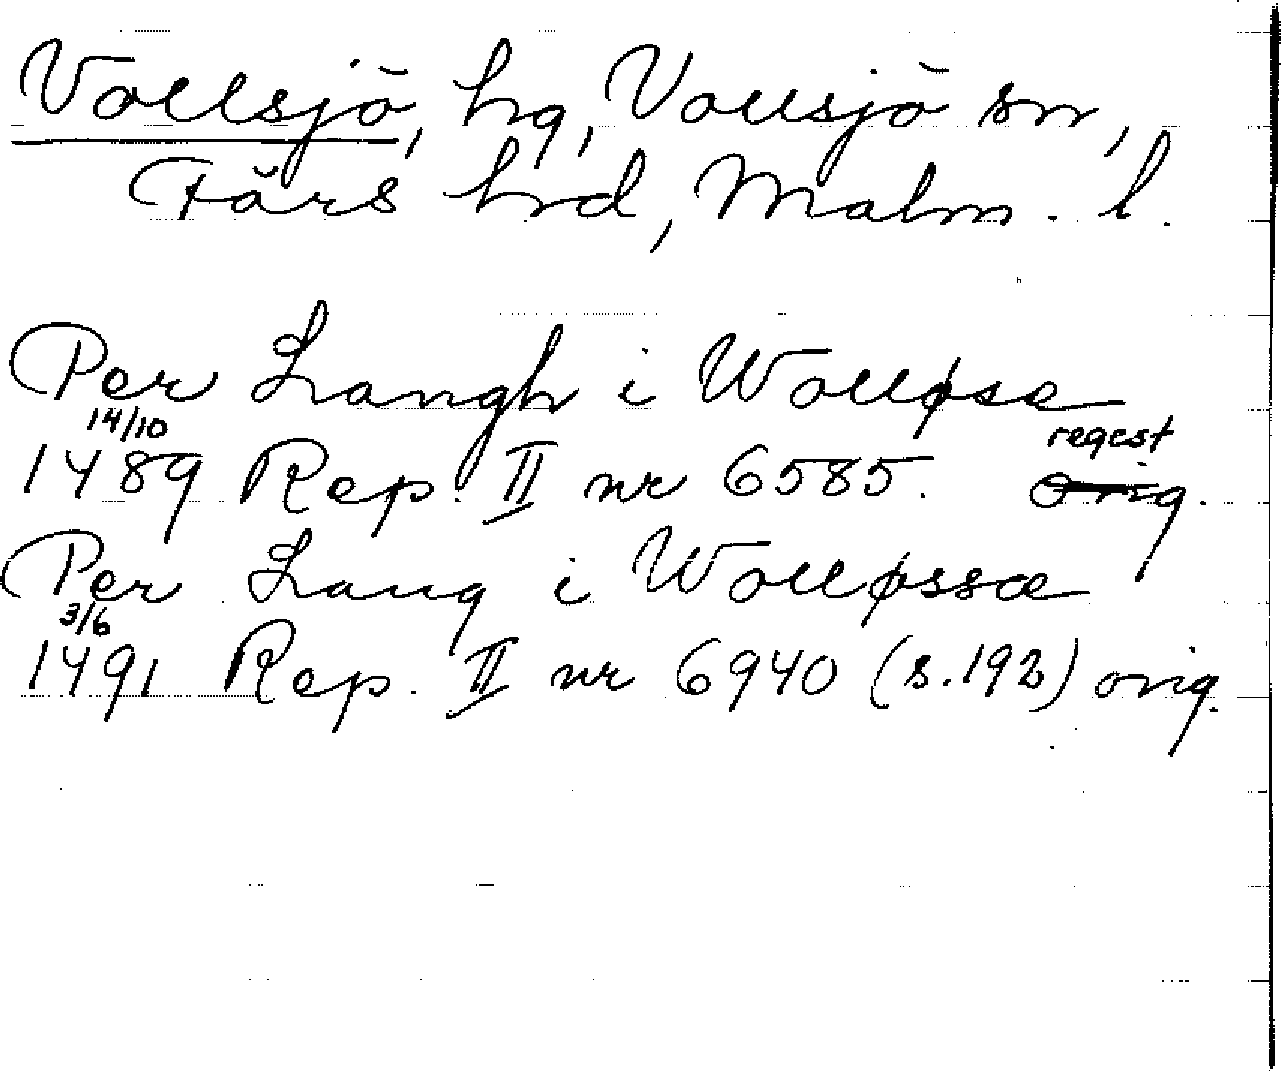 Vollsjö, hg, Vollsjö sn,
Färs hrd, Malm. l.
Per Langh i Wolløse
14/10 regest
1489 Rep. II nr 6585. orig.
Per Lang i Wolløssæ
3/6
1491 Rep. II nr 6940 (s.192) orig.